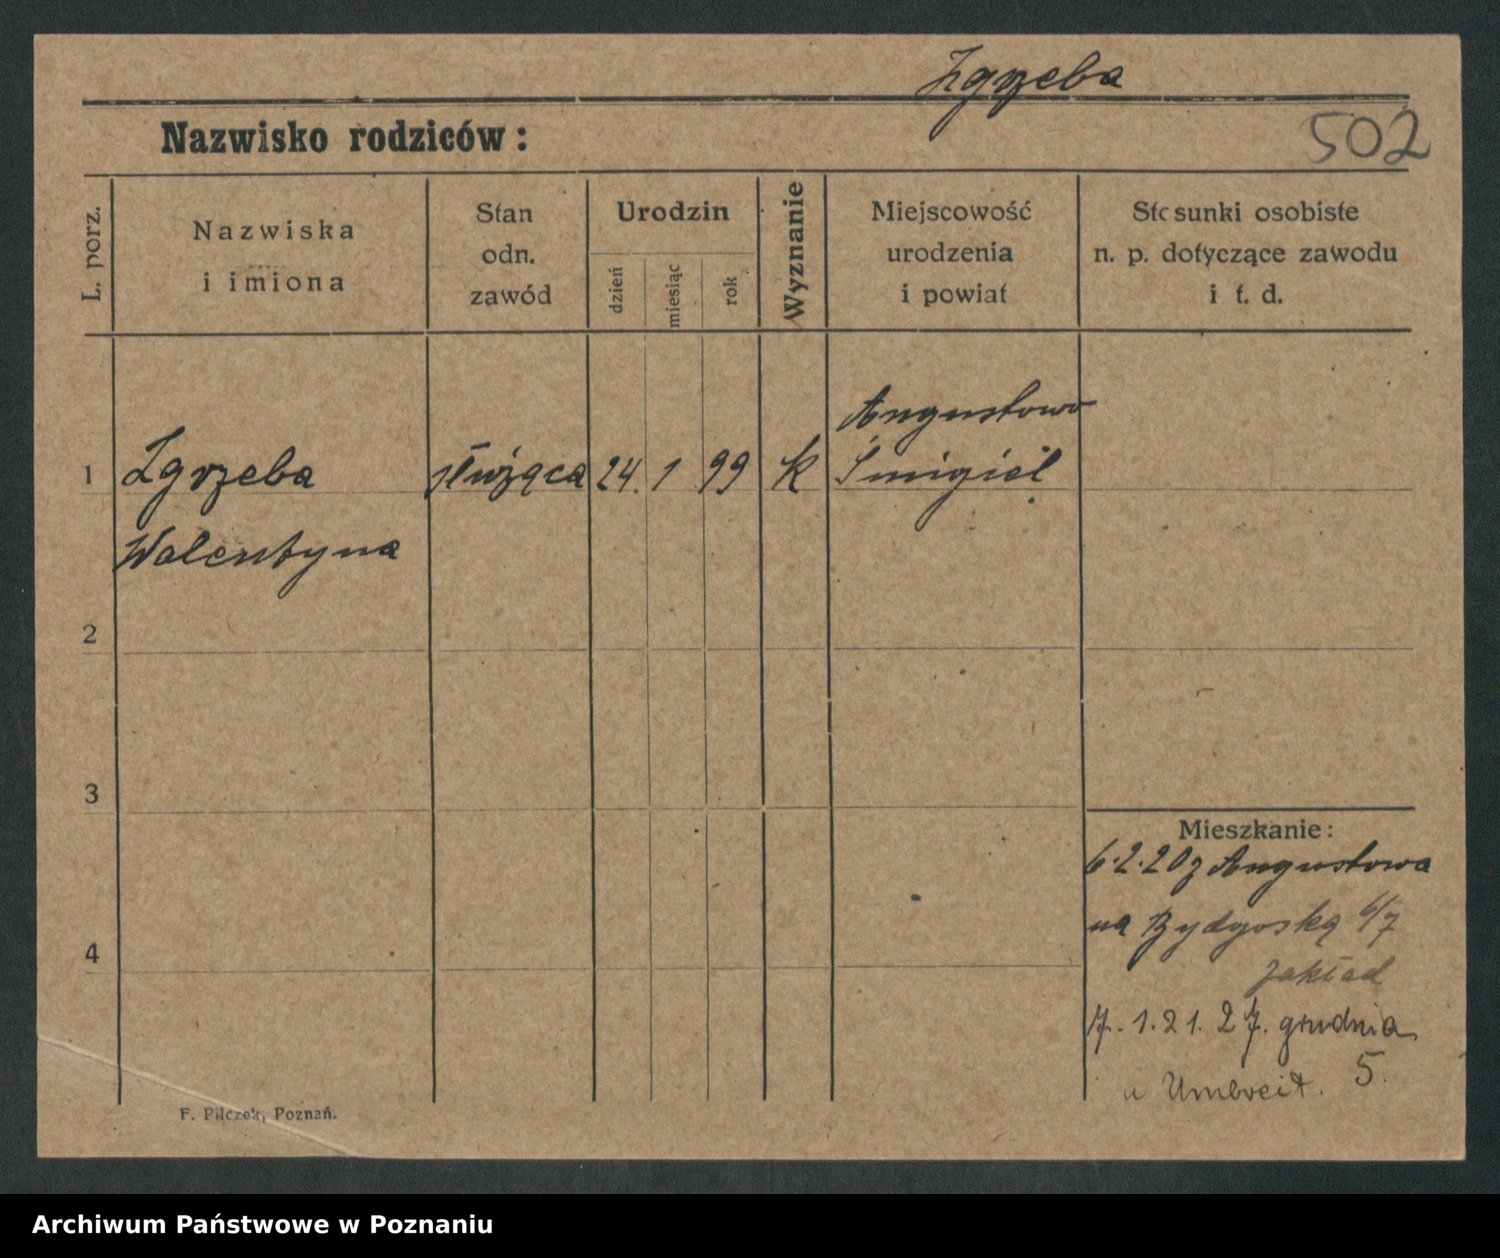 Zgrzeba
Nazwisko rodziców:
502
L. porz.
Nazwiska
i imiona
Stan
odn.
zawód
Urodzin
dzień
miesiąc
rok
Wyznanie
Miejscowość
urodzenia
i powiat
Stosunki osobiste
n. p. dotyczące zawodu
i t. d.
1
Zgrzeba
Walentyna
służąca
24. 1 99
k
Augustowo
Śmigiel
2
3
4
Mieszkanie:
6.2.20 z Augustowa
na Bydgoską 6/7
zakład
7. 1. 21. 27. grudnia
5.
u Umbreit.
F. Pilczek, Poznań.
Archiwum Państwowe w Poznaniu